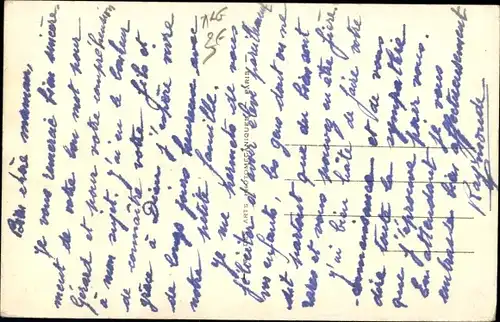 Bien chère maman,
Je vous remercie bien sincère-
ment de votre bon mot pour
Gérard et pour votre compréhension
à mon sujet. J'ai eu le bonheur
de connaître votre fils et
grâce à Dieu j'espère vivre
de longs jours heureux avec
notre petite famille.
Je me permets de vous
féliciter d'avoir élevé
vos enfants, les gens dont on me
dit partout que du bien sont
rares et vous pouvez en être fière.
J'ai bien hâte de faire votre
connaissance et de vous
dire toute la sympathie
que j'éprouve pour vous.
En attendant je vous
embrasse bien affectueusement
Raymonde
ARTS PHOTOMÉCANIQUES PARIS